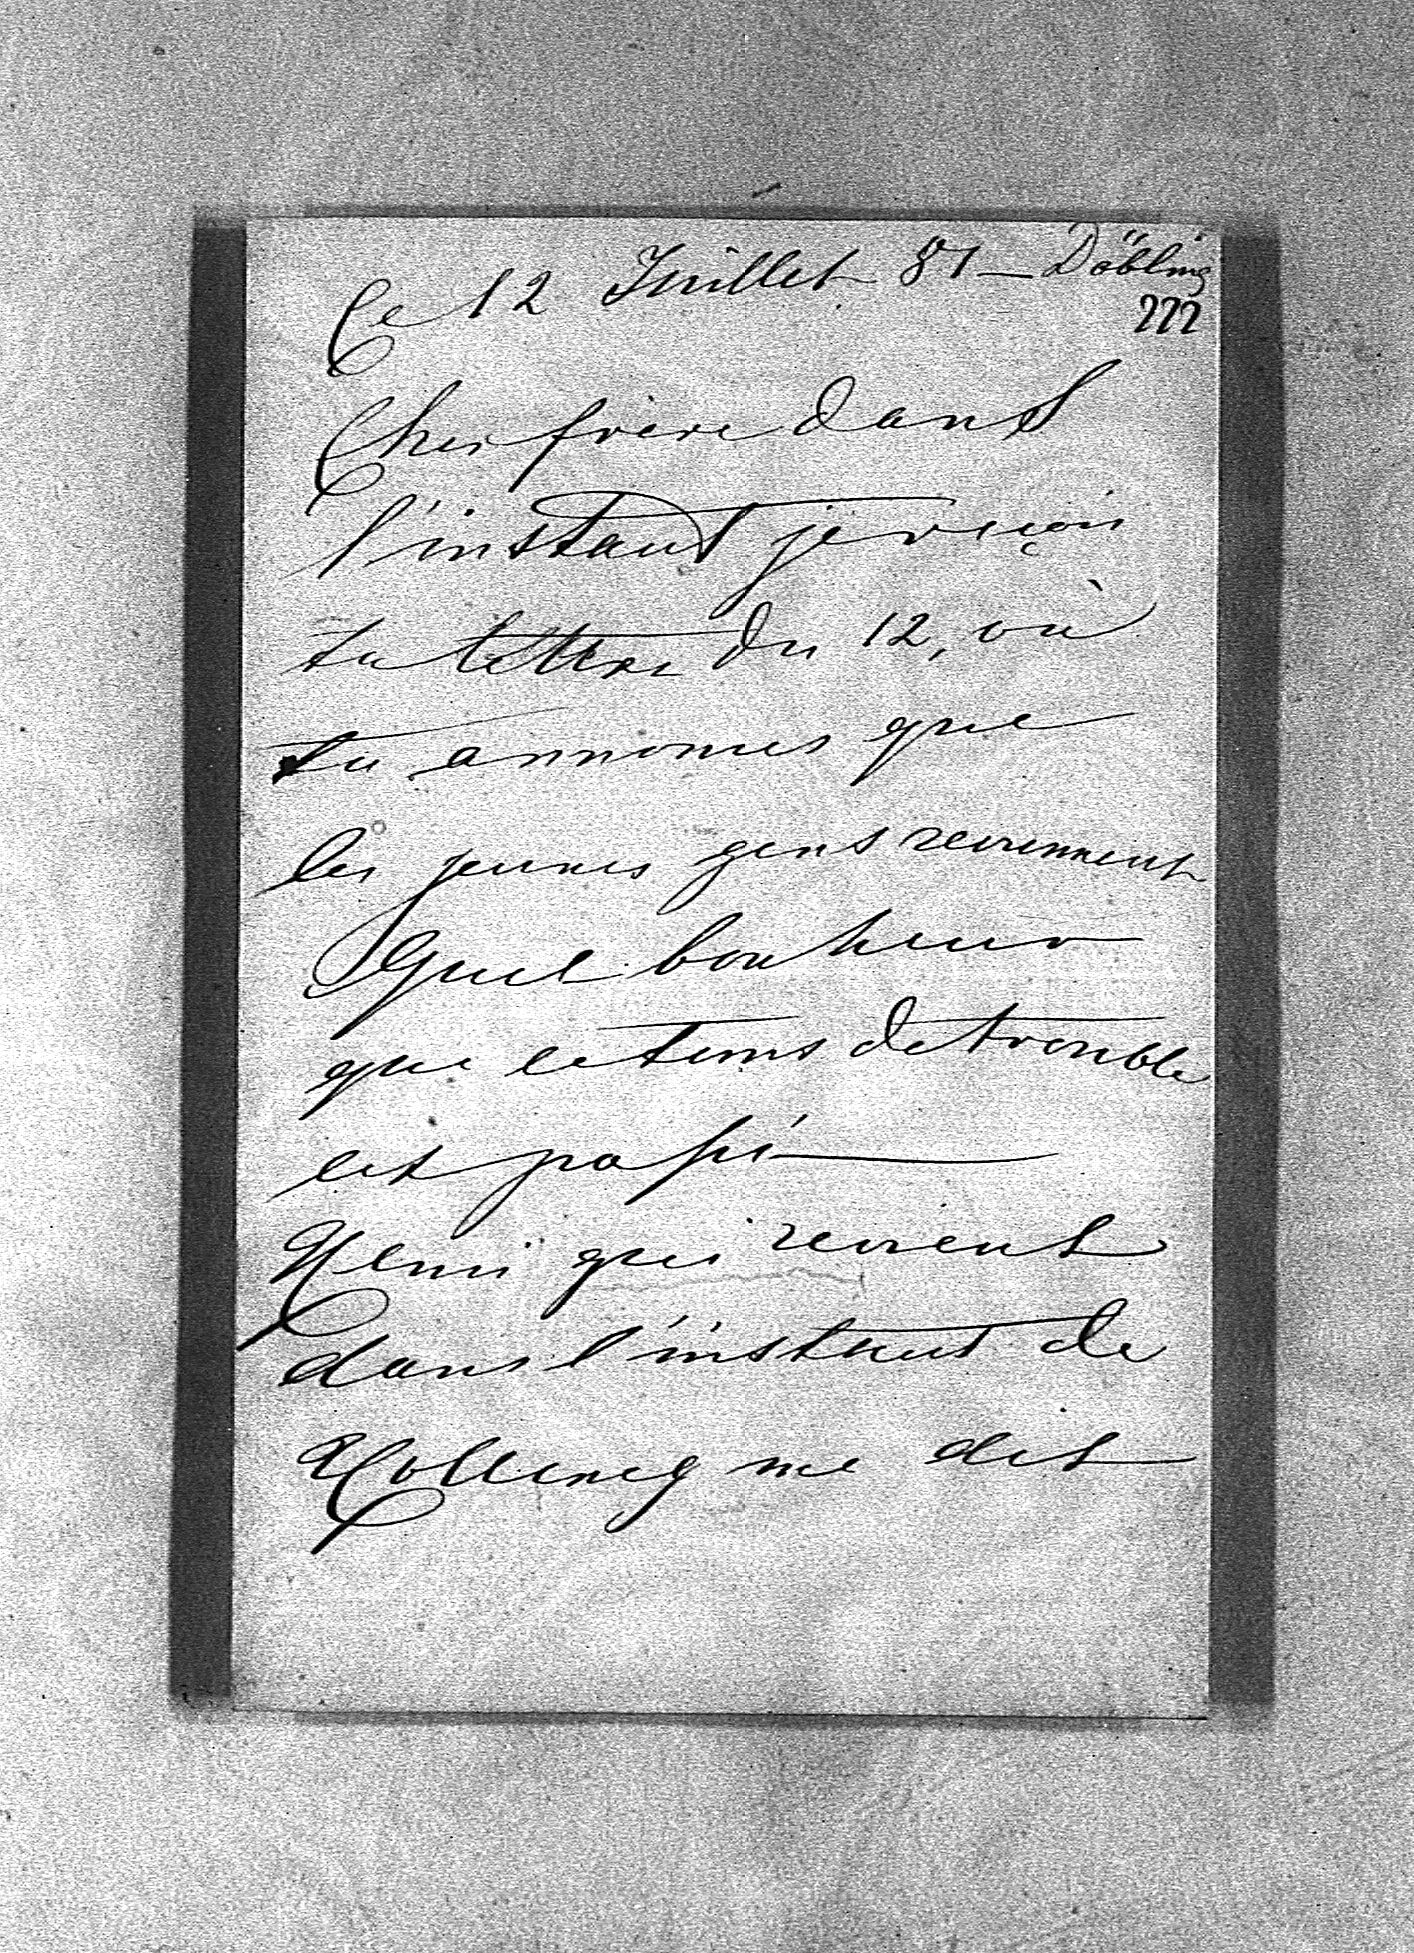 Ce 12 Juillet 81 – Döbling
222
Cher frère dans
l'instant je reçois
ta lettre du 12, où
tu annonces que
les jeunes gens reviennent
Quel bonheur
que ce tems de trouble
est passé —
Henri qui revient
dans l'instant de
me dit